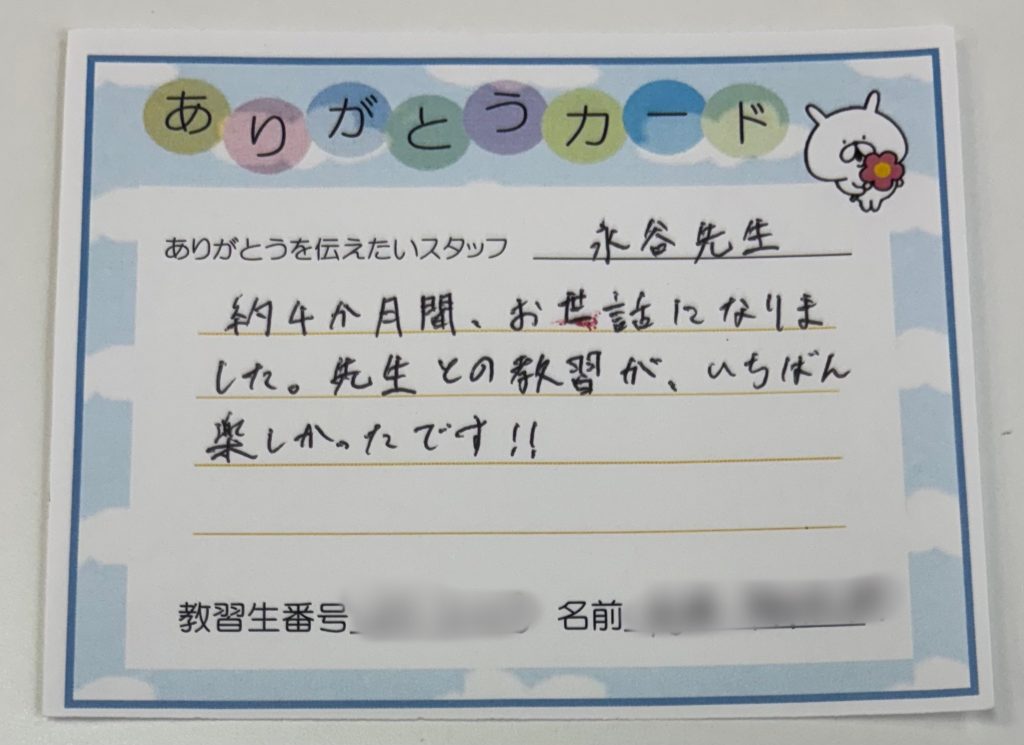 ありがとうカード
ありがとうを伝えたいスタッフ 永谷先生
約4か月間、お世話になりま
した。先生との教習が、いちばん
楽しかったです!!
教習生番号 名前